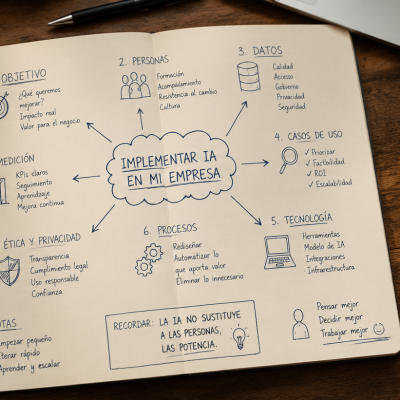 OBJETIVO
¿Qué queremos
mejorar?
Impacto real
Valor para el negocio
2. PERSONAS
Formación
Acompañamiento
Resistencia al cambio
Cultura
3. DATOS
Calidad
Acceso
Gobierno
Privacidad
Seguridad
IMPLEMENTAR IA
EN MI EMPRESA
4. CASOS DE USO
✓ Priorizar
✓ Factibilidad
✓ ROI
✓ Escalabilidad
KPIs claros
Seguimiento
Aprendizaje
Mejora continua
5. TECNOLOGÍA
Herramientas
Modelo de IA
Integraciones
Infraestructura
6. PROCESOS
Rediseñar
Automatizar lo
que aporta valor
Eliminar lo innecesario
ÉTICA Y PRIVACIDAD
Transparencia
Cumplimiento legal
Uso responsable
Confianza
RECORDAR: LA IA NO SUSTITUYE
A LAS PERSONAS,
LAS POTENCIA.
pequeño
rápido
Aprender y escalar
Pensar mejor
Decidir mejor
Trabajar mejor